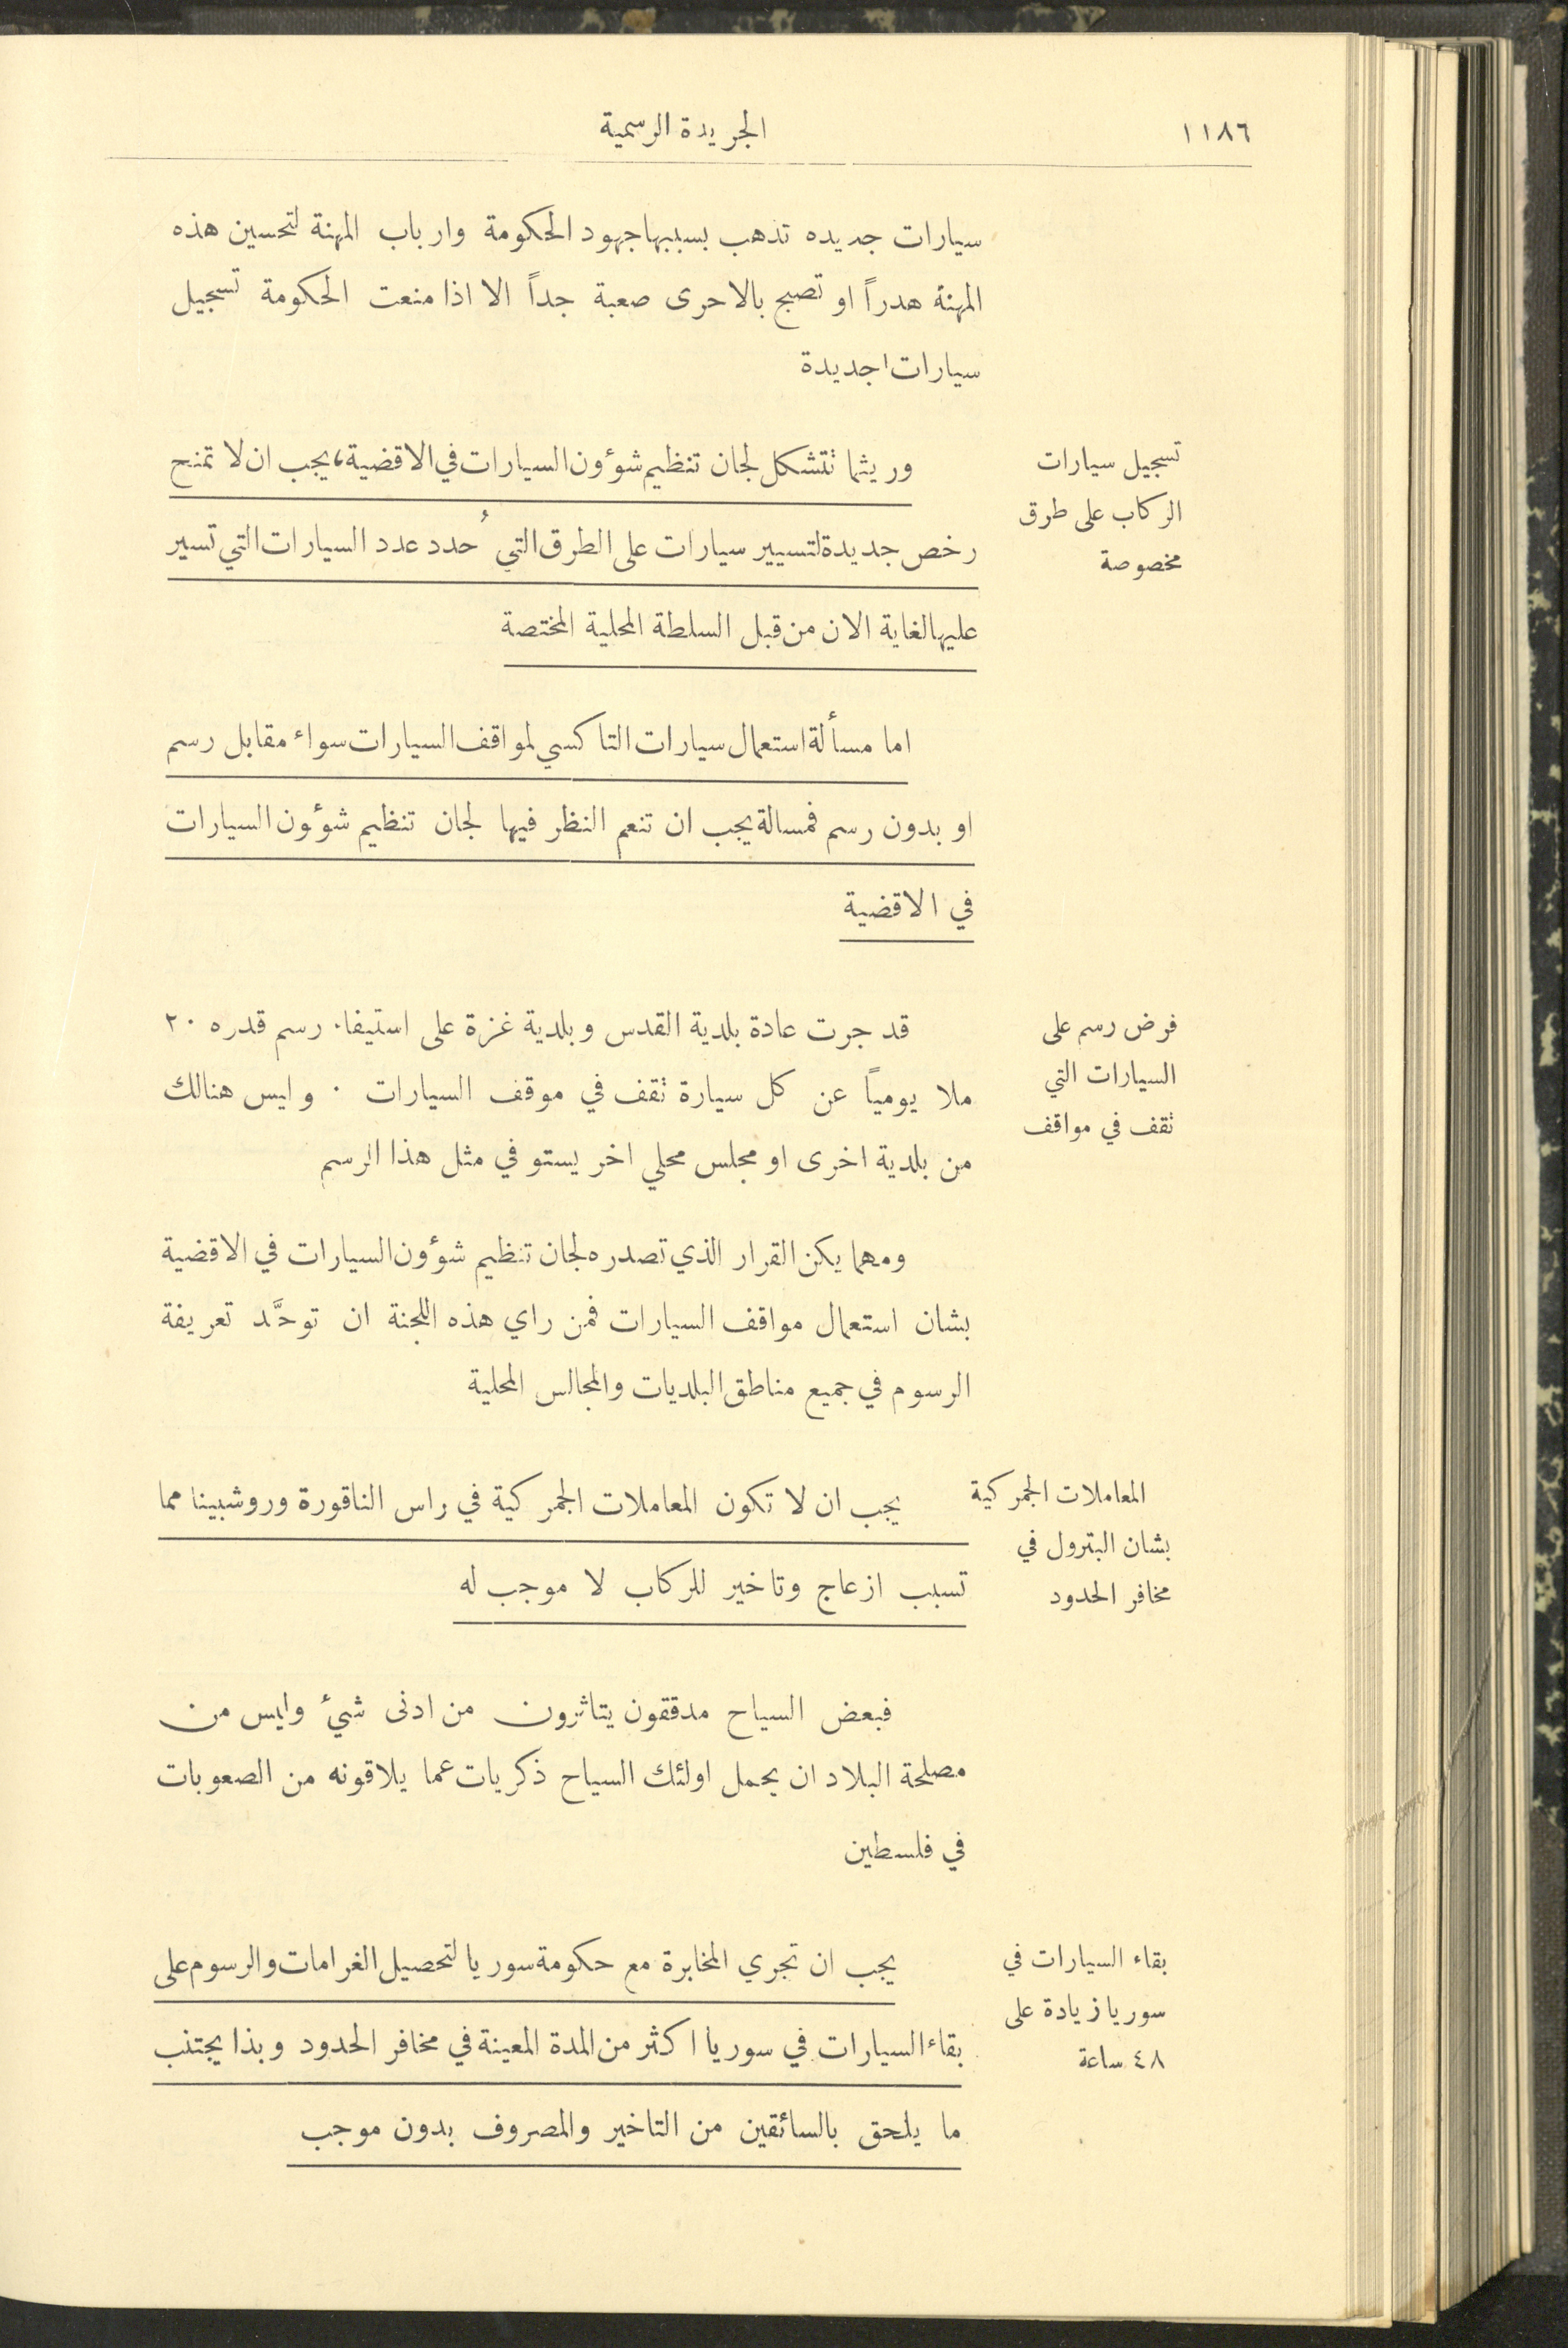 ١١٨٦
الجريدة الرسمية
سيارات جديده تذهب بسببها جهود الحكومة وارباب المهنة لتحسين هذه
المهنة هدراً او تصبح بالاحرى صعبة جداً الا اذا منعت الحكومة تسجيل
سيارات جديدة
تسجيل سيارات
الركاب على طرق
مخصوصة
وريثما تتشكل لجان تنظيم شوؤن السيارات في الاقضية، يجب ان لا تمنح
رخص جديدة لتسيير سيارات على الطرق التي حُدد عدد السيارات التي تسير
عليها لغاية الان من قبل السلطة المحلية المختصة
اما مسألة استعمال سيارات التاكسي لمواقف السيارات سواء مقابل رسم
او بدون رسم فمسالة يجب ان تنعم النظر فيها لجان تنظيم شوؤن السيارات
في الاقضية
فرض رسم على
السيارات التي
تقف في مواقف
قد جرت عادة بلدية القدس وبلدية غزة على استيفاء رسم قدره ٢٠
ملا يومياً عن كل سيارة تقف في موقف السيارات ٠ وليس هنالك
من بلدية اخرى او مجلس محلي اخر يستوفي مثل هذا الرسم
ومهما يكن القرار الذي تصدره لجان تنظيم شوؤن السيارات في الاقضية
بشان استعمال مواقف السيارات فمن راي هذه اللجنة ان توحَّد تعريفة
الرسوم في جميع مناطق البلديات والمجالس المحلية
المعاملات الجمركية
بشان البترول في
مخافر الحدود
يجب ان لا تكون المعاملات الجمركية في راس الناقورة وروشبينا مما
تسبب ازعاج وتاخير للركاب لا موجب له
فبعض السياح مدققون يتاثرون من ادنى شئ وليس من
مصلحة البلاد ان يحمل اولئك السياح ذكريات عما يلاقونه من الصعوبات
في فلسطين
بقاء السيارات في
سوريا زيادة على
٤٨ ساعة
يجب ان تجري المخابرة مع حكومة سوريا لتحصيل الغرامات والرسوم على
بقاء السيارات في سوريا اكثر من المدة المعينة في مخافر الحدود وبذا يجتنب
ما يلحق بالسائقين من التاخير والمصروف بدون موجب